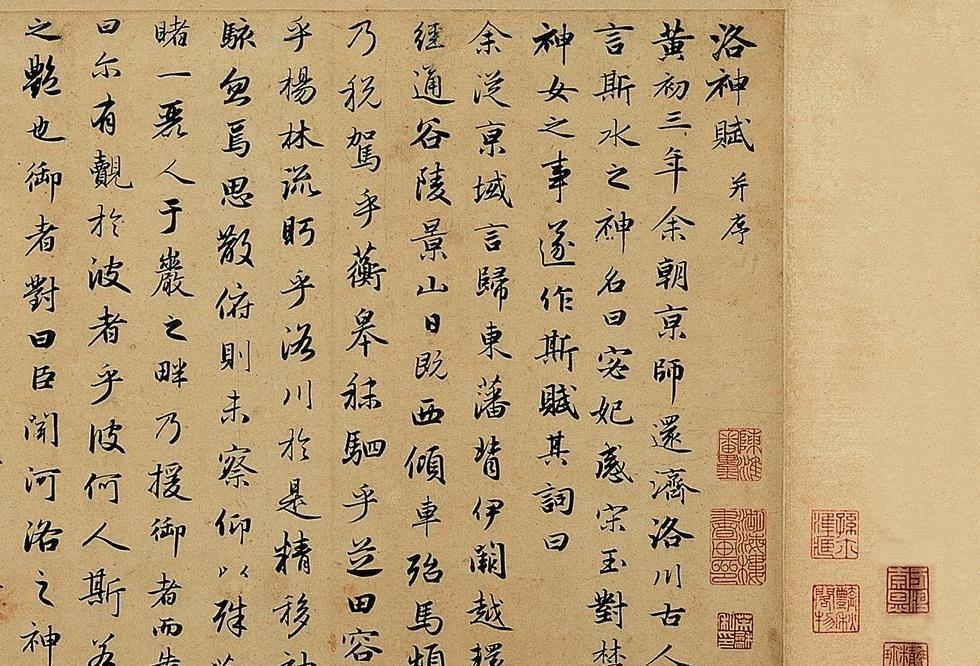 洛神賦 并序
黃初三年余朝京師還濟洛川古人
言斯水之神名曰宓妃感宋玉對楚
神女之事遂作斯賦其詞曰
余從京域言歸東藩背伊闕越轘
經通谷陵景山日既西傾車殆馬煩
乃稅駕乎蘅皋秣駟乎芝田容
乎楊林流眄乎洛川於是精移神
駭忽焉思散俯則未察仰以殊
睹一麗人于巖之畔乃援御者而告
曰尔有覿於彼者乎彼何人斯若
之艷也御者對曰臣聞河洛之神